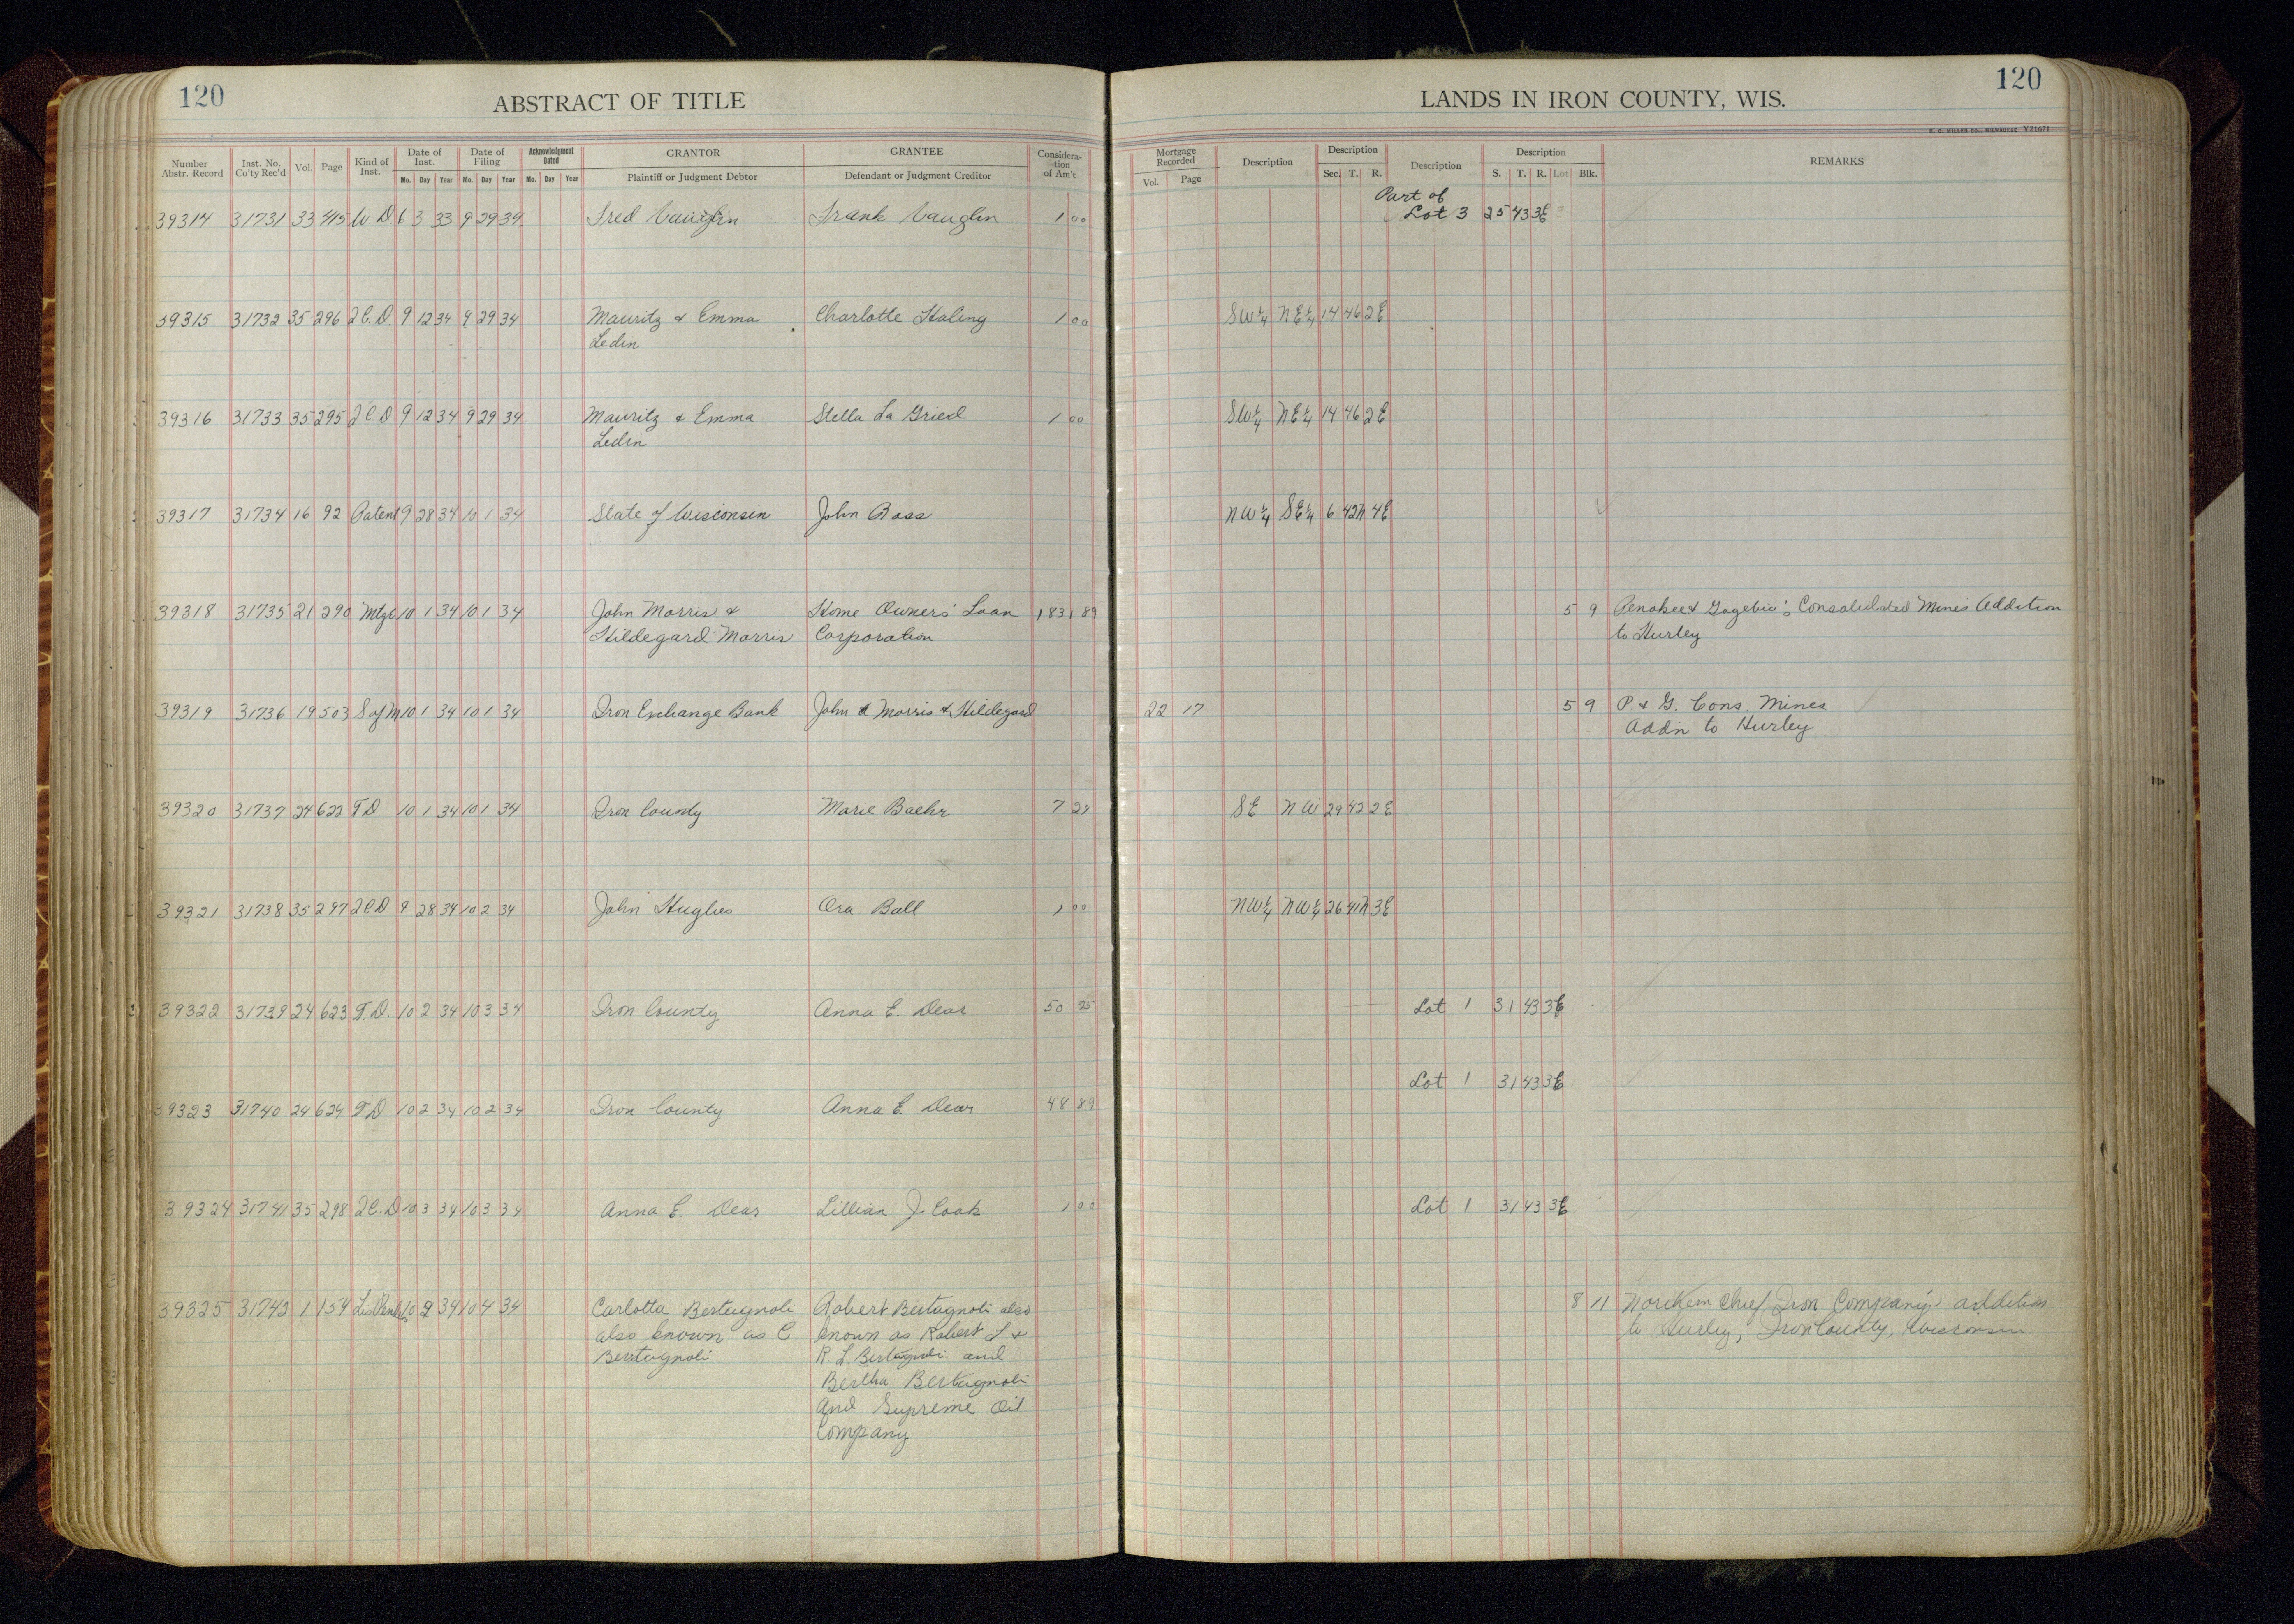 120
ABSTRACT OF TITLE
LANDS IN IRON COUNTY, WIS.
120
H. C. MILLER CO., MILWAUKEE Y21671
Number Abstr. Record Inst. No. Co'ty Rec'd Vol. Page Kind of Inst. Date of Inst. Mo. Day Year Date of Filing Mo. Day Year Acknowledgment Dated Mo. Day Year GRANTOR Plaintiff or Judgment Debtor GRANTEE Defendant or Judgment Creditor Considera-tion of Am't Mortgage Recorded Vol. Page Description Description Sec. T. R. Description Description S. T. R. Lot Blk. REMARKS
Part of
39314 31731 33 415 W.D 6 3 33 9 29 34 Fred Vaughn Frank Vaughn 1 00 Lot 3 25 43 3E
39315 31732 35 296 2C.D. 9 12 34 9 29 34 Mauritz & Emma Charlotte Haling 1 00 SW¼ NE¼ 14 46 2E
Ledin
39316 31733 35 295 2C.D 9 12 34 9 29 34 Mauritz & Emma Stella La Gried 1 00 SW¼ NE¼ 14 46 2E
Ledin
39317 31734 16 92 Patent 9 28 34 10 1 34 State of Wisconsin John Ross NW¼ SE¼ 6 42N 4E
39318 31735 21 290 Mtge 10 1 34 10 1 34 John Morris & Home Owners' Loan 1,831 89 5 9 Penokee & Gogebic's Consolidated Mines Addition
Hildegard Morris Corporation to Hurley
39319 31736 19 503 S of M 10 1 34 10 1 34 Iron Exchange Bank John Morris & Hildegard 22 17 5 9 P. & G. Cons. Mines
Addn to Hurley
39320 31737 24 622 T D 10 1 34 10 1 34 Iron County Marie Baehr 7 24 SE NW 29 42 2E
39321 31738 35 297 2CD 9 28 34 10 2 34 John Hughes Ora Ball 1 00 NW¼ NW¼ 26 41N 3E
39322 31739 24 623 T.D. 10 2 34 10 3 34 Iron County Anna E. Dear 50 25 Lot 1 31 43 3E
Lot 1 31 43 3E
39323 31740 24 624 T D 10 2 34 10 2 34 Iron County Anna E. Dear 48 89
39324 31741 35 298 2C.D 10 3 34 10 3 34 Anna E. Dear Lillian J. Cook 1 00 Lot 1 31 43 3E
39325 31742 1 154 Lis Pendens 10 2 34 10 4 34 Carlotta Bertagnoli Robert Bertagnoli also 8 11 Northern Chief Iron Company's addition
also known as C known as Robert L & to Hurley, Iron County, Wisconsin
Bertagnoli R. L. Bertagnoli and
Bertha Bertagnoli
and Supreme Oil
Company